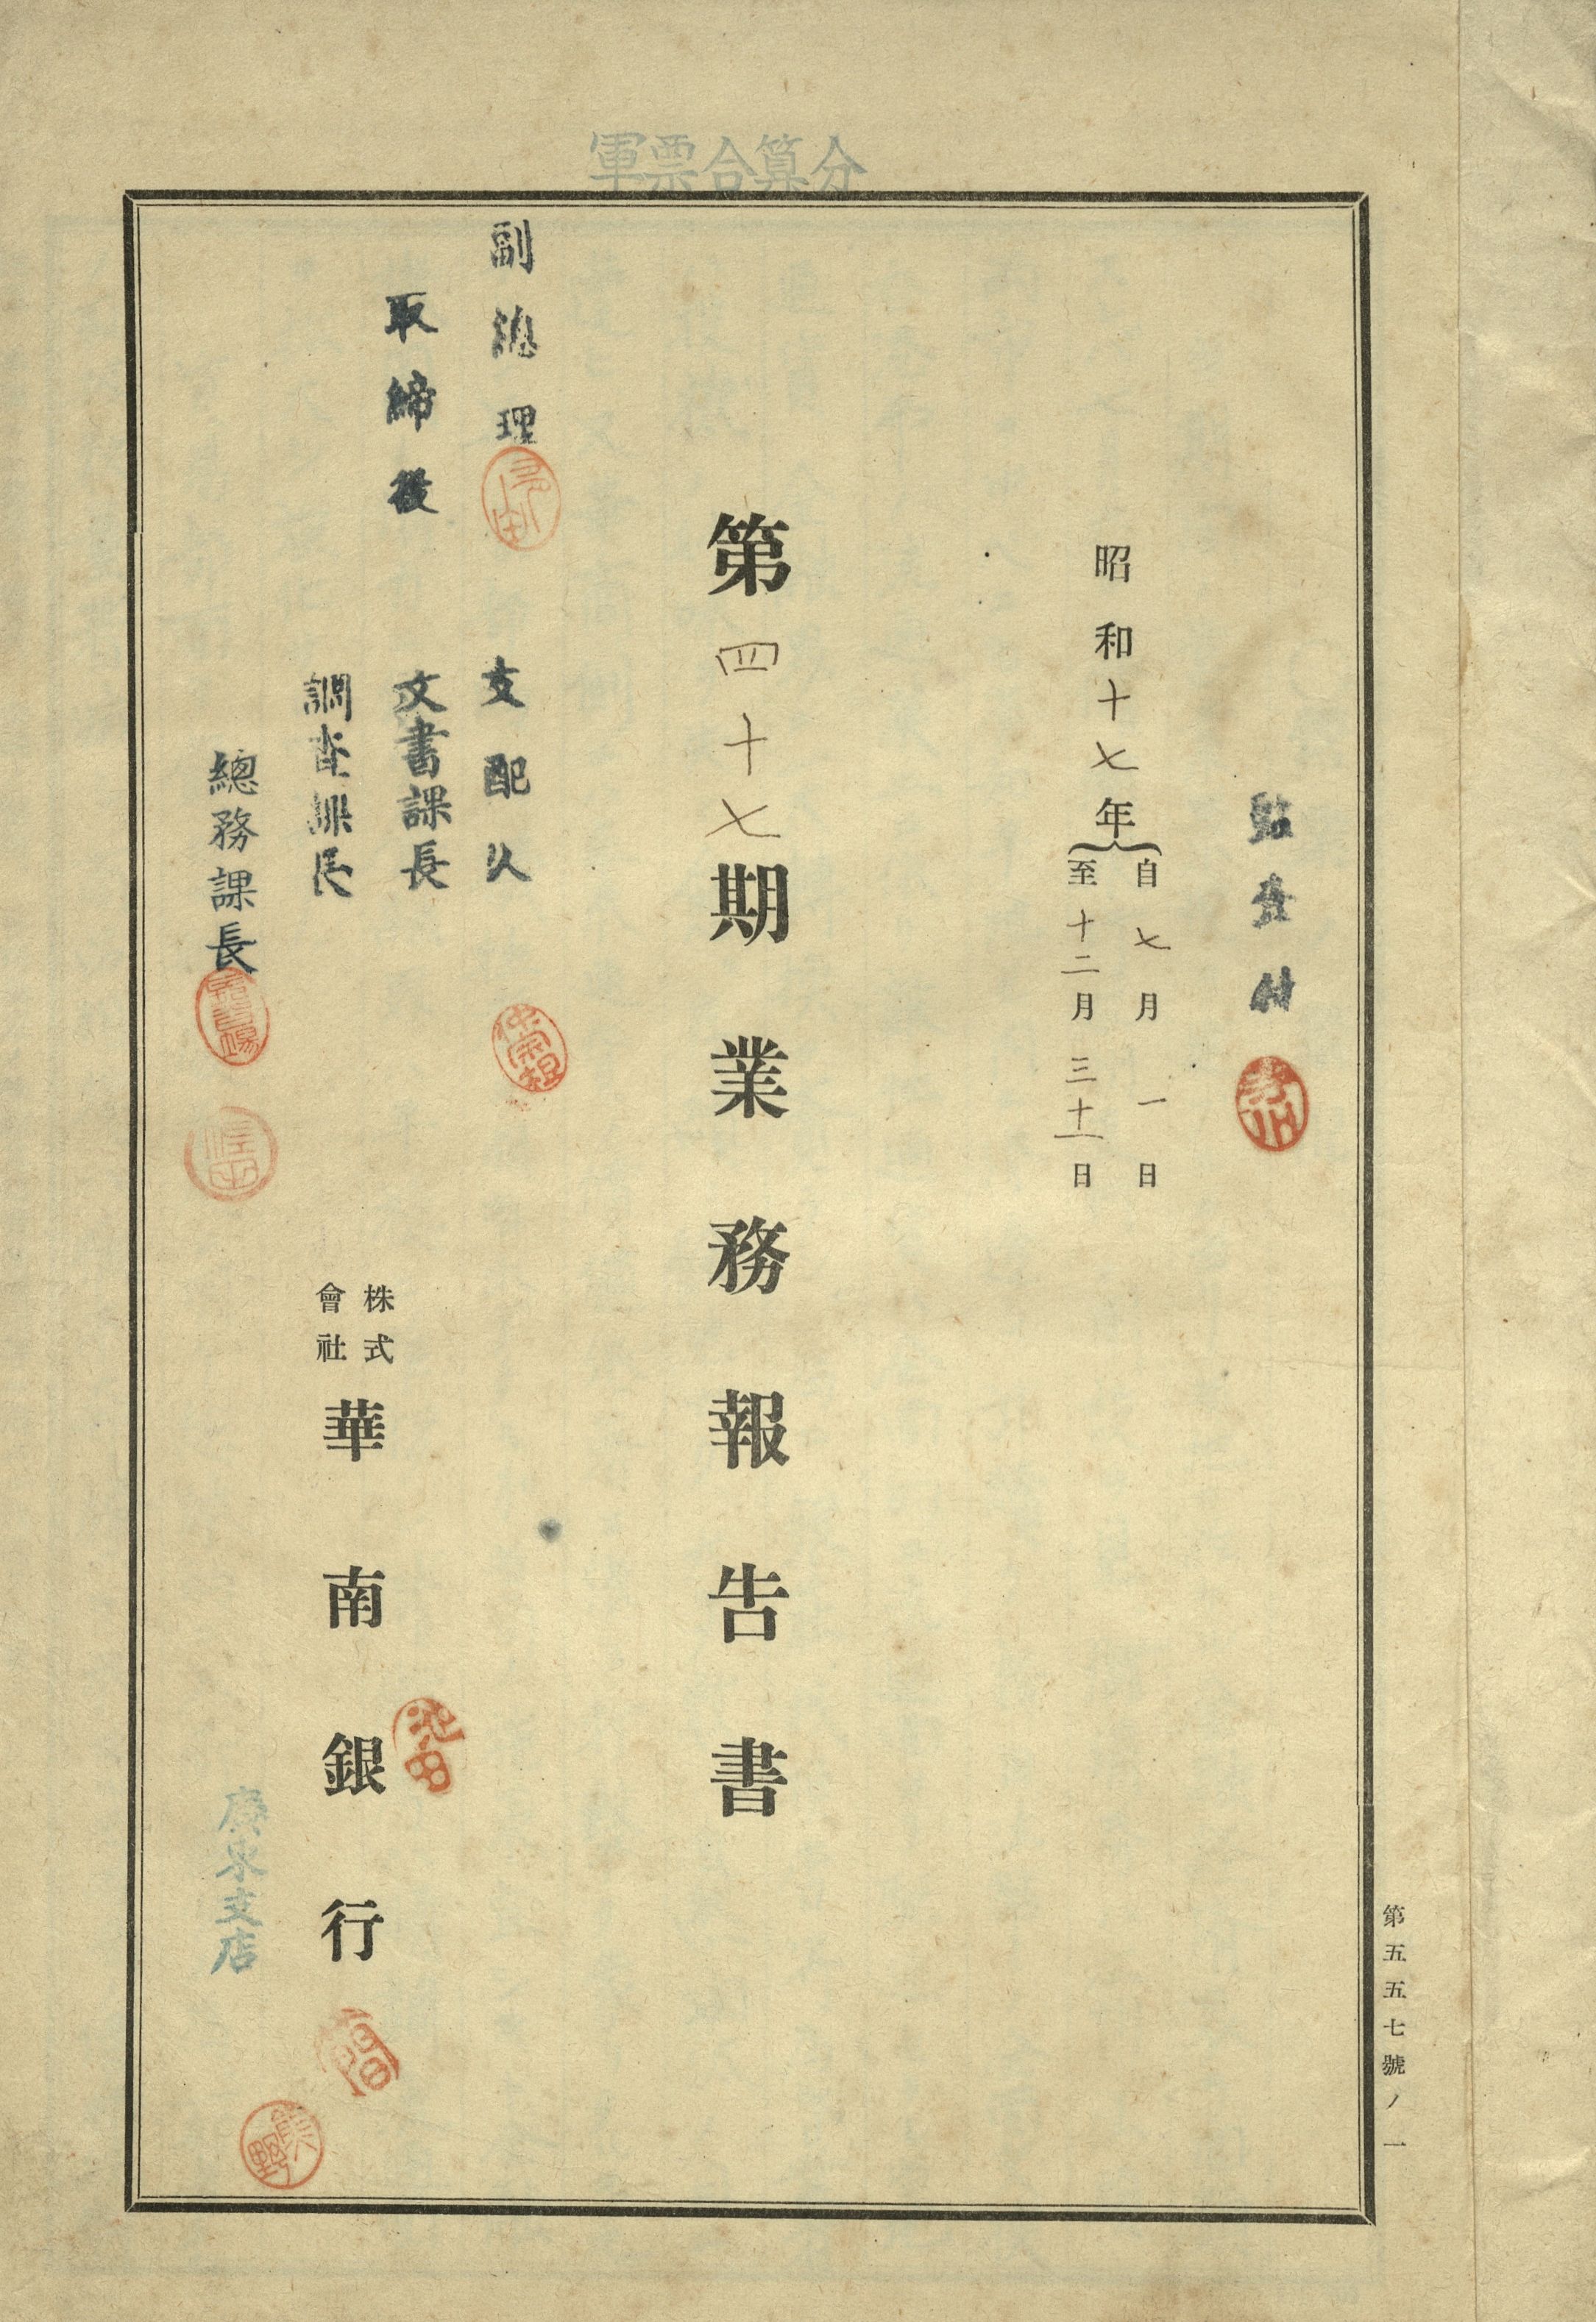 軍票合算分
監査付
昭和十七年
自七月一日
至十二月三十一日
第四十七期業務報告書
副總理
支配人
取締役
文書課長
調査課長
總務課長
株式會社華南銀行
池田
廣東支店
第五五七號ノ一